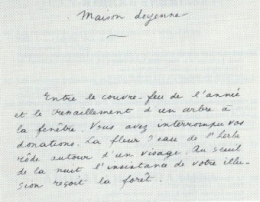 Maison doyenne
Entre le couvre-feu de l'année
et le tressaillement d'un arbre à
la fenêtre. Vous avez interrompu vos
donations. La fleur d'eau de l'herbe
rôde autour d'un visage. Au seuil
de la nuit l'insistance de votre illu-
sion reçoit la forêt.